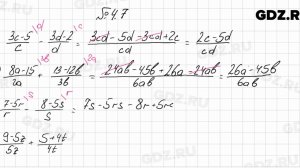 № 47
GDZ.RU
(3c-5)/c \d - (3d-2)/d \c = (3cd - 5d - 3cd + 2c)/cd = (2c-5d)/cd
(8a-15)/2a \3b + (13-12b)/3b \2a = (24ab - 45b + 26a - 24ab)/6ab = (26a-45b)/6ab
(7-5r)/r \s - (8-5s)/s \r = 7s - 5rs - 8r + 5rs
(9-5z)/5z + (5+4t)/4t
GDZ.RU